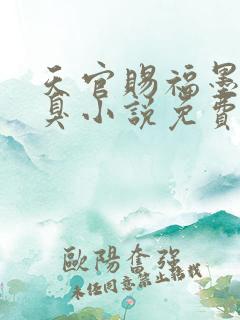 天官賜福墨
臭小説免費
歐陽奮强
未任同意禁止轉載